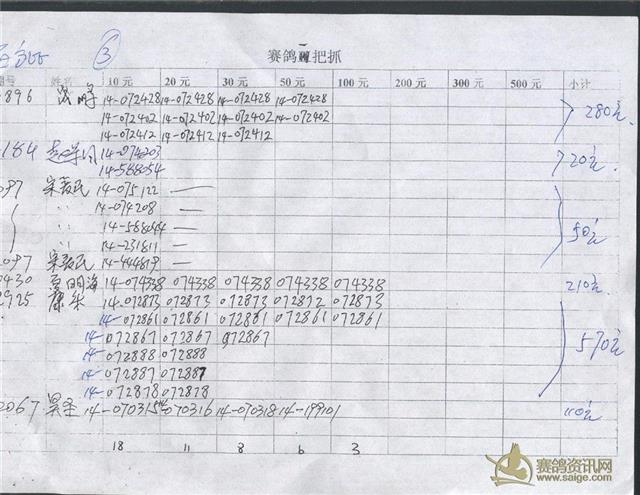 ③ 赛鸽 把抓
姓名 10元 20元 30元 50元 100元 200元 300元 500元 小计
896 14-072428 14-072428 14-072428 14-072428
14-072402 14-072402 14-072402 14-072402 280元
14-072412 14-072412 14-072412
184 14-074203 20元
14-588054
14-075122 —
〃 14-074208 —
〃 14-588044 — 50元
〃 14-231811 —
14-444819 —
2430 14-074338 074338 074338 074338 074338 210元
2925 14-072873 072873 072873 072872 072873
14-072861 072861 072861 072861 072861
14-072867 072867 072867 570元
14-072888 072888
14-072887 072887
14-072878 072878
2067 14-070315 070316 14-070318 14-199101 110元
18 11 8 6 3
赛鸽资讯网
www.saige.com